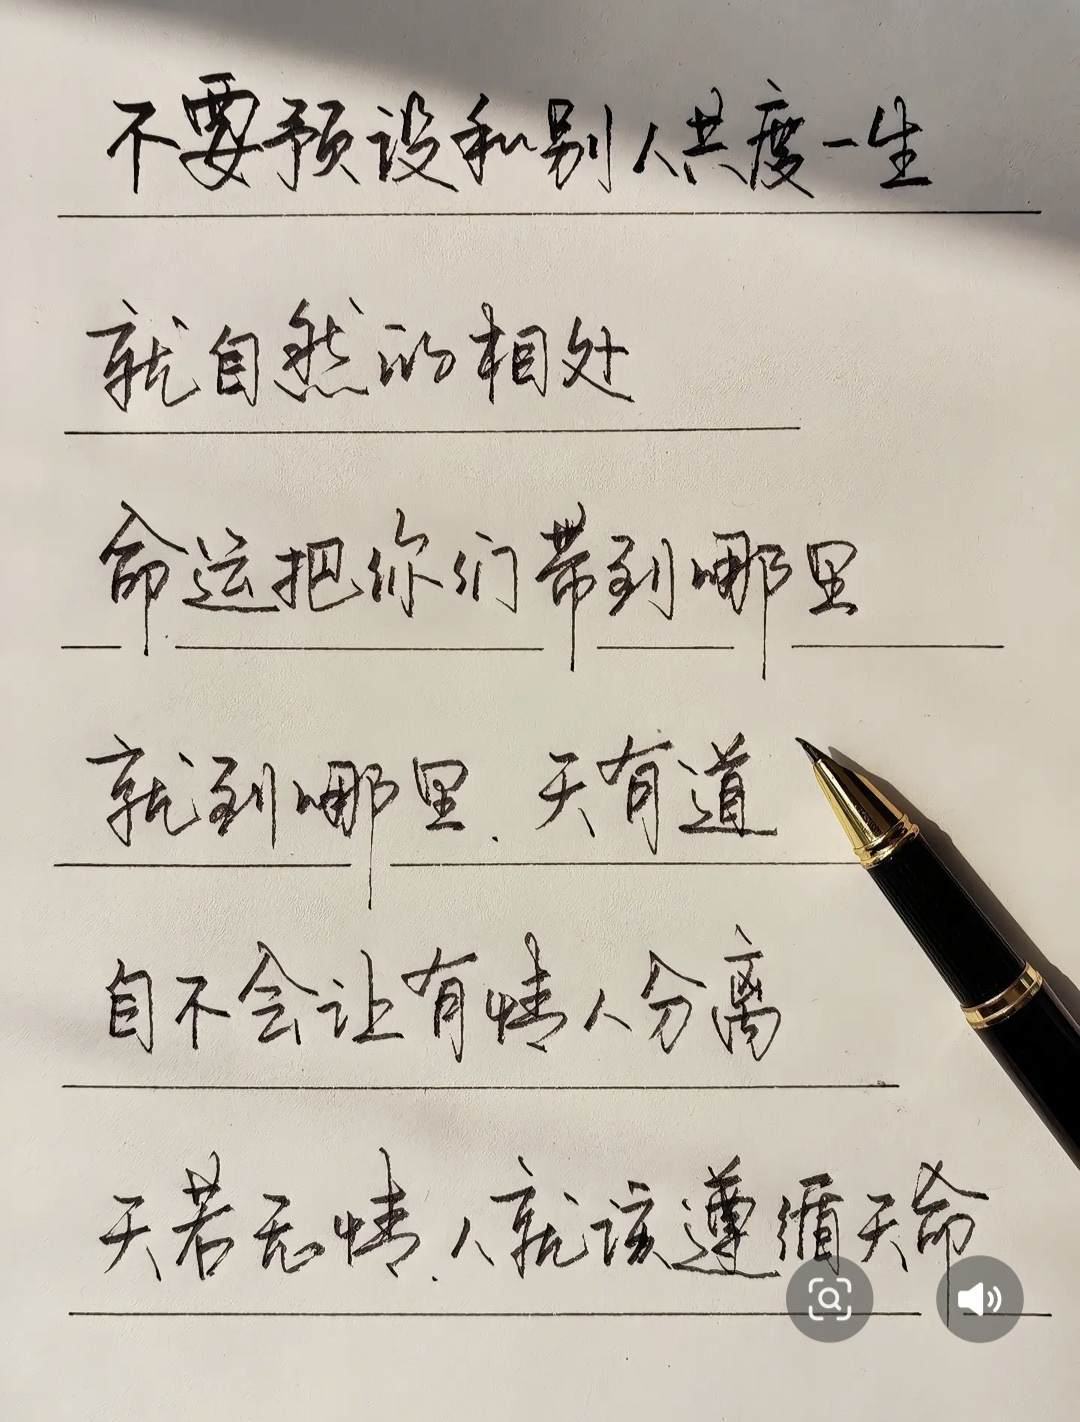 不要预设和别人共度一生
就自然的相处
命运把你们带到哪里
就到哪里.天有道
自不会让有情人分离
天若无情.人就该遵循天命